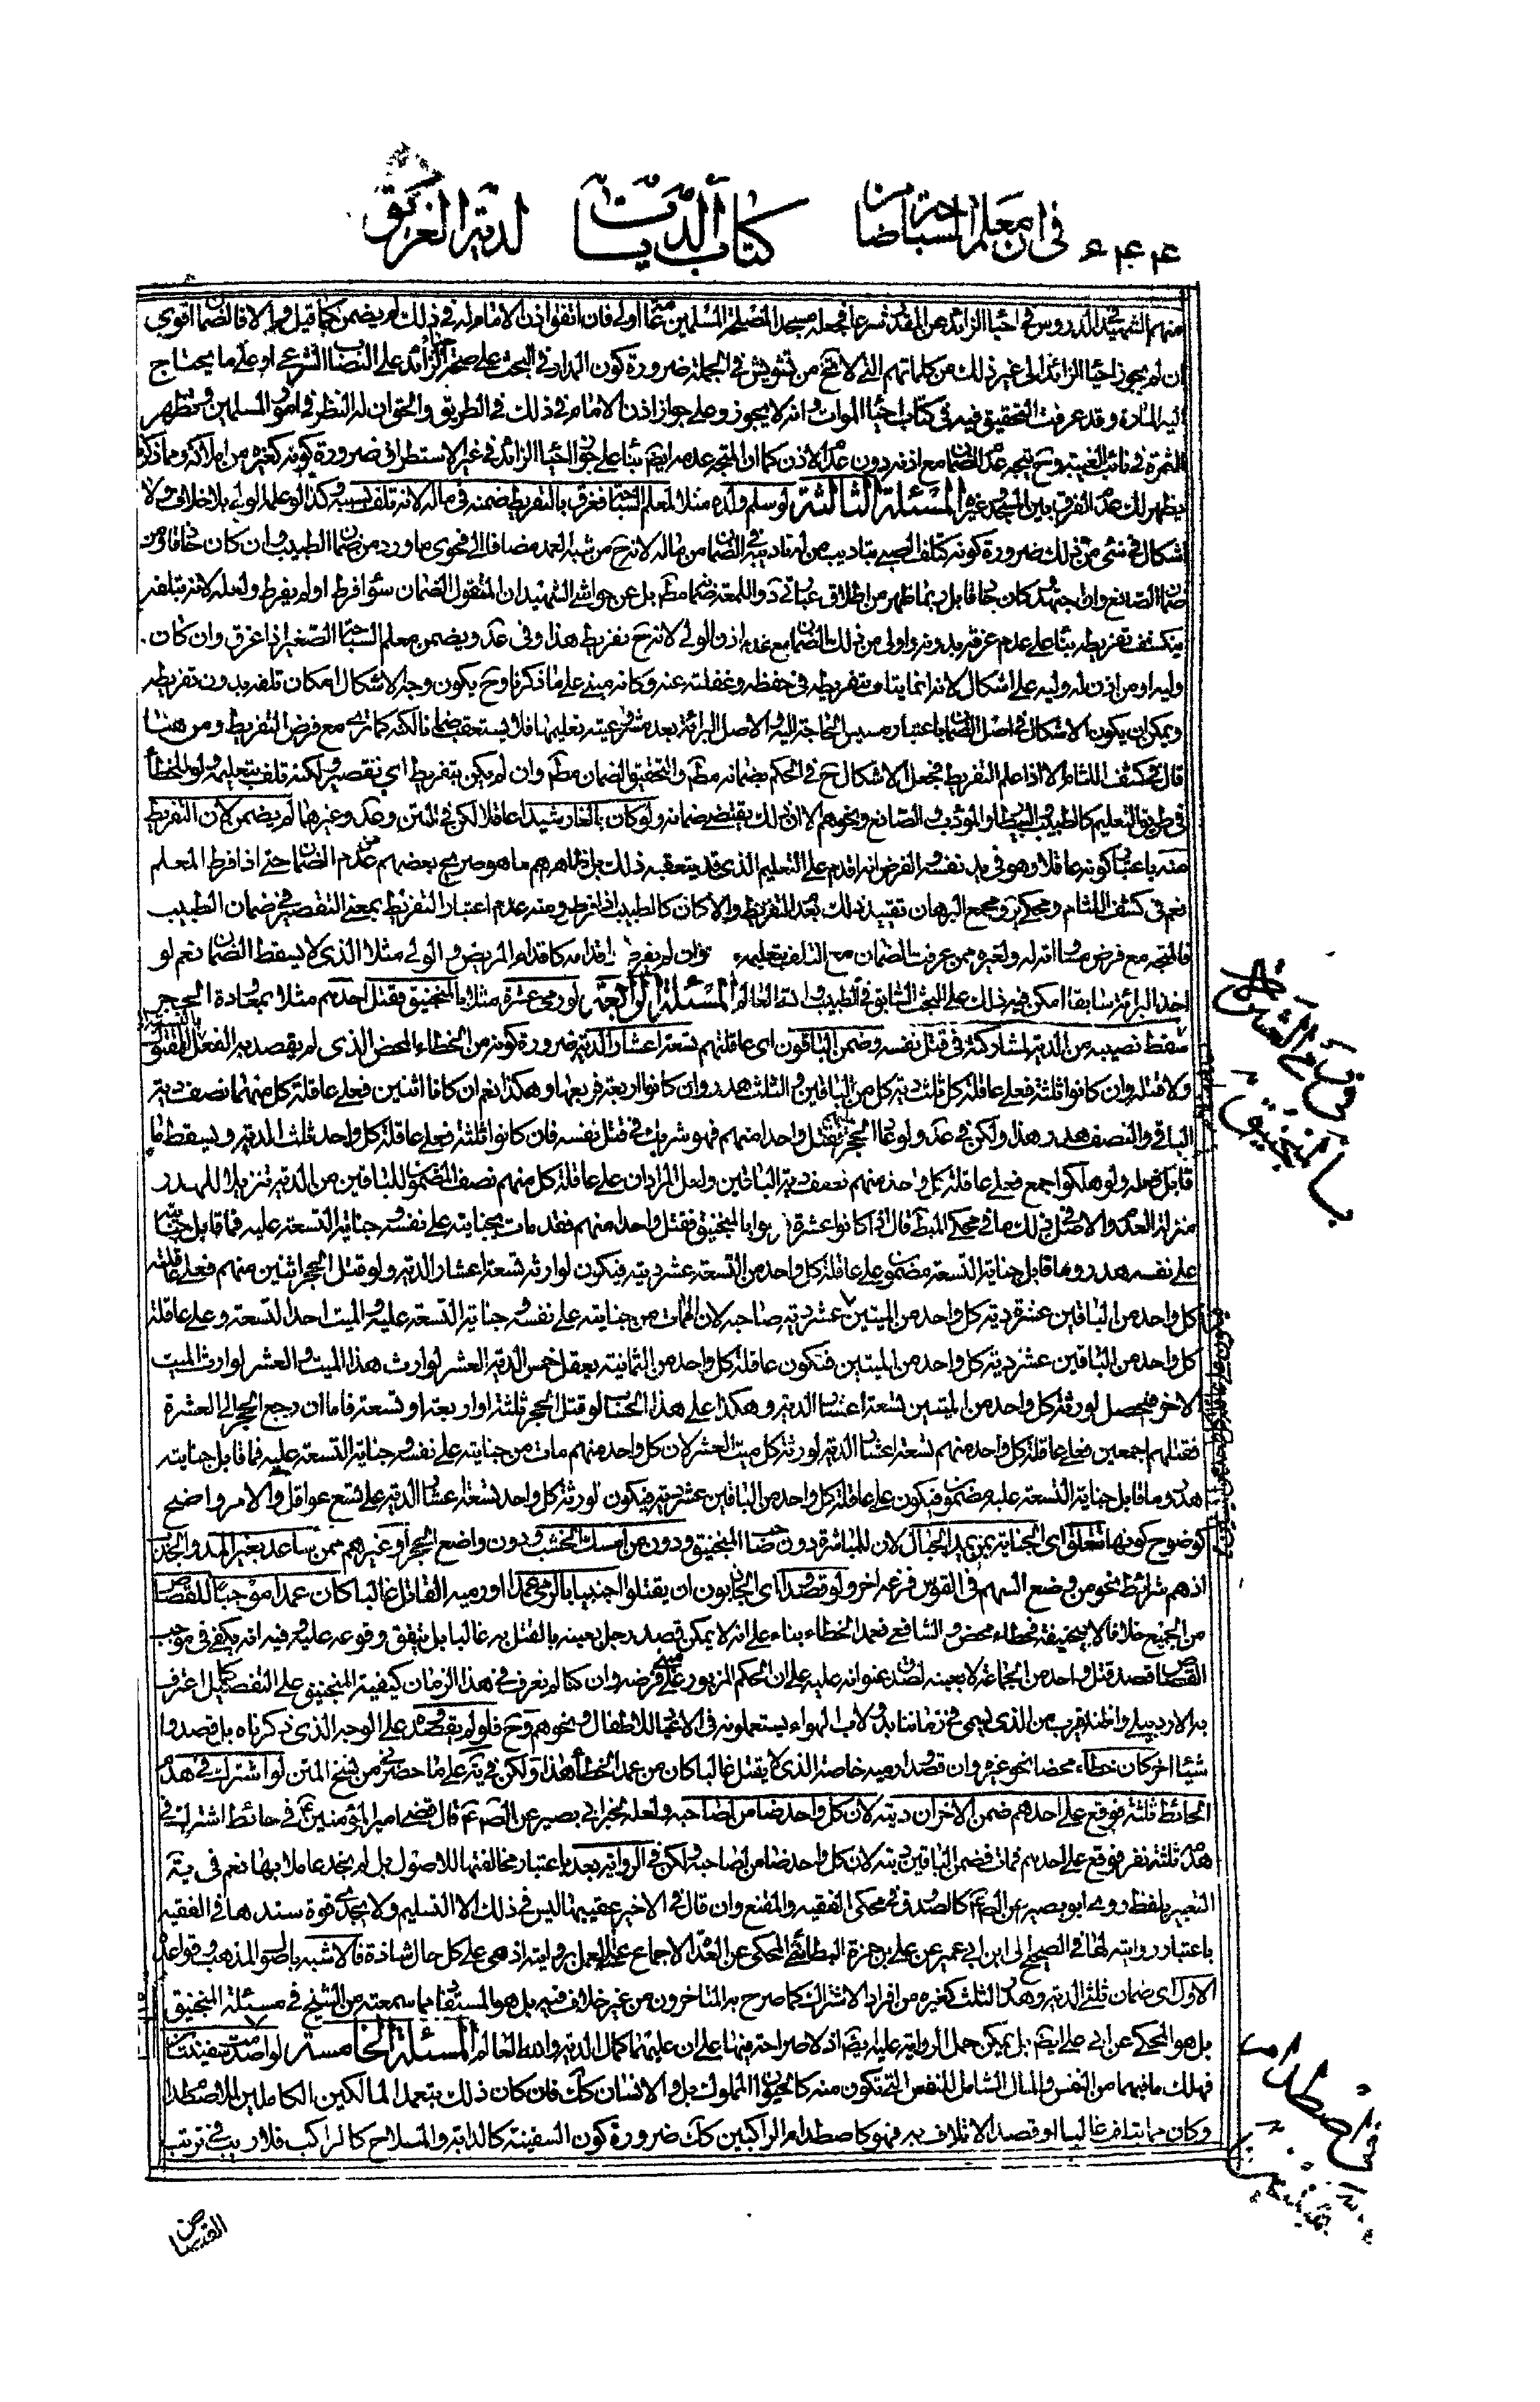 في ان معلم السباحة ضامن كتاب الديات لدية الغريق
منهم الشهيد في الدروس في احياء الزائد عن المقدر شرعا فجعله مسجدا لمصلحة المسلمين عامة اولى فان اتفق اذن الامام له في ذلك لم يضمن كما قيل والا فالضمان اقوى
ان لم يجوز احياء الزائد الى غير ذلك من كلماتهم التي لا تخ من تشويش في الجملة ضرورة كون المدار في البحث على الزائد على النصاب الشرعي او على ما يحتاج
اليه المارة وقد عرفت التحقيق فيه في كتاب احياء الموات وانه لا يجوز وعلى جواز اذن الامام في ذلك في الطريق والحق ان له النظر في امور المسلمين وتظهر
الثمرة في نائب الغيبة وح يتجه عدم الضمان مع اذنه دون عدم الاذن كما ان المتجه عدمه ايضم بناء على جواز احياء الزائد في غير الاستطراق ضرورة كونه كغيره من املاكه ومما ذكرنا
يظهر لك عدم الفرق بين المسجد وغيره المسئلة الثالثة لو سلم ولده مثلا لمعلم السباحة فغرق بالتفريط ضمنه في ماله لانه تلف بسببه وكذا لو علمه الولي بلا خلاف ولا
اشكال في شئ من ذلك ضرورة كونه كتلف الصبي بتاديب من له تاديبه في الضمان من ماله لانه ح من شبه العمد مضافا الى فحوى ما ورد من ضمان الطبيب وان كان حاذقا ومن
ضمان الصانع وان اجتهد وكان حاذقا بل ربما ظهر من اطلاق عبارتي عد واللمعة ضمانه مط بل عن حواشي الشهيد ان المنقول الضمان سواء فرط او لم يفرط ولعله لانه بتلفه
ينكشف تفريطه بناء على عدم غرقه بدونه واولى من ذلك الضمان مع عدم اذن الولي لانه ح تفريط هذا وفي عد ويضمن معلم السباحة الصغير اذا غرق وان كان
وليه او من اذن له وليه على اشكال لانه انما يتلف بتفريطه في حفظه وغفلته عنه وكانه مبني على ما ذكرنا وح يكون وجه الاشكال امكان تلفه بدون تفريطه
ويمكن ان يكون الاشكال في اصل الضمان باعتبار مسيس الحاجة اليه والاصل البرائة بعد مشروعية تعليمها فلا يستعقب ضمانا لكنه كما ترى مع فرض التفريط ومن هنا
قال في كشف اللثام الا اذا علم التفريط فجعل الاشكال ح في الحكم بضمانه مط والتحقيق الضمان مط وان لم يكن بتفريط اي تقصير ولكنه تلف بتعليمه ولو للخطأ
في طريق التعليم كالطبيب والبيطار والمؤدب والصانع ونحوهم لان ذلك يقتضي ضمانه ولو كان بالغا رشيدا عاقلا لكن في المتن وعد وغيرهما لم يضمن لان التفريط
منه باعتبار كونه عاقلا وهو في يد نفسه والفرض انه اقدم على التعليم الذي قد يتعقبه ذلك بل ظاهرهم ما هو صريح بعضهم من عدم الضمان حتى اذا فرط المعلم
نعم في كشف اللثام ومحكي ير ومجمع البرهان تقييد ذلك بعدم التفريط والا كان كالطبيب اذا فرط ومنه عدم اعتبار التفريط بمعنى التقصير في ضمان الطبيب
فالمتجه مع فرض مساواته له ولغيره ممن عرفت الضمان مع التلف بتعليمه وان لم يفرط اقدامه كاقدام المريض والولي مثلا الذي لا يسقط الضمان نعم لو
اخذ البرائة سابقا امكن فيه ذلك على البحث السابق في الطبيب والله العالم المسئلة الرابعة لو رمى عشرة مثلا بالمنجنيق فقتل احدهم مثلا بمعاودة الحجر
سقط نصيبه من الدية لمشاركته في قتل نفسه وضمن الباقون اي عاقلتهم تسعة اعشار الدية ضرورة كونه من الخطاء المحض الذي لم يقصد به الفعل بالمقتول
ولا قتله وان كانوا ثلثة فعلى عاقلة كل ثلث دية كل من الباقين والثلث هدر وان كانوا اربعة فربعها وهكذا نعم ان كانا اثنين فعلى عاقلة كل منهما نصف دية
الباقي والنصف هدر هذا ولكن في عد ولو عاد الحجر فقتل واحدا منهم فهو شريك في قتل نفسه فان كانوا ثلثة فعلى عاقلة كل واحد ثلث الدية ويسقط ما
قابل فعله ولو هلكوا اجمع فعلى عاقلة كل واحد منهم نصف دية الباقين ولعل المراد ان على عاقلة كل منهم نصف المضمون للباقين من الدية تنزيلا للهدر
منزلة العدم والاصل في ذلك ما في محكي المبسوط قال اذا كانوا عشرة رموا بالمنجنيق فقتل واحدا منهم فقد مات بجنايته على نفسه وجناية التسعة عليه فما قابل جنايته
على نفسه هدر وما قابل جناية التسعة مضمون على عاقلة كل واحد من التسعة عشر ديته فيكون لوارثه تسعة اعشار الدية ولو قتل الحجر اثنين منهم فعلى عاقلة
كل واحد من الباقين عشر دية كل واحد من الميتين عشر دية صاحبه لانه مات من جنايته على نفسه وجناية التسعة عليه والميت احد التسعة وعلى عاقلة
كل واحد من الباقين عشر دية كل واحد من الميتين فتكون عاقلة كل واحد من الثمانية يعقل خمس الدية العشر لوارث هذا الميت والعشر لوارث الميت
الاخر فيحصل لورثة كل واحد من الميتين تسعة اعشار الدية وهكذا على هذا الحساب لو قتل الحجر ثلثة او اربعة او تسعة فاما ان رجع الحجر الى العشرة
فقتلهم اجمعين فعلى عاقلة كل واحد منهم تسعة اعشار الدية لورثة كل ميت العشر لان كل واحد منهم مات من جنايته على نفسه وجناية التسعة عليه فما قابل جنايته
هدر وما قابل جناية التسعة عليه مضمون فيكون على عاقلة كل واحد من الباقين عشر ديته فيكون لورثة كل واحد تسعة اعشار الدية على تسع عواقل والامر واضح
كوضوح كونها تتعلق اي الجناية بمن يمد الحبال لان المباشرة دون صاحب المنجنيق ودون من امسك الخشب ودون واضع الحجر او غيرهم ممن ساعد بغير المد والجذب
اذ هم شرائط نحو من وضع السهم في القوس فنزعه اخر ولو قصدوا اي الجاذبون ان يقتلوا اجنبيا بالرمي عمدا او رميه القاتل غالبا كان عمدا موجبا للقصاص
من الجميع خلافا لابي حنيفة فخطاء محض والشافعي فعمد الخطاء بناء على انه لا يمكن قصد رجل بعينه بالقتل به غالبا بل يتفق وقوعه عليه وفيه انه يكفي في موجب
القصاص قصد قتل واحد من الجماعة لا بعينه لصدق عنوانه عليه على ان الحكم المزبور مبني على فرضه وان كنا لم نعرف في هذا الزمان كيفية المنجنيق على التفصيل كما اعترف
به الاردبيلي واظنه قريب من الذي يسمى في زماننا بدولاب الهواء يستعملونه في الاعياد للاطفال ونحوهم وح فلو لم يقصد على الوجه الذي ذكرناه بل قصدوا
شيئا اخر كان خطاء محضا نحو غيره وان قصدوا رميه خاصة الذي لا يقتل غالبا كان من عمد الخطأ هذا ولكن في ية على ما حضرني من نسخ المتن لو اشترك في هدم
الحائط ثلثة فوقع على احدهم ضمن الاخران ديته لان كل واحد ضامن لصاحبه ولعله لخبر ابي بصير عن الصم قال قضى امير المؤمنين ع في حائط اشترك في
هدمه ثلثة نفر فوقع على احدهم فمات فضمن الباقين ديته لان كل واحد ضامن لصاحبه ولكن في الرواية بعد باعتبار مخالفتها للاصول بل لم نجد عاملا بها نعم في ية
التعبير بلفظ روى ابو بصير عن الصم كالصدوق في محكي الفقيه والمقنع وان قال في الاخير عقيبها ليس في ذلك الا التسليم ولا يجدى قوة سندها في الفقيه
باعتبار روايته لها في الصحيح الى ابن ابي عمير عن علي بن حمزة البطائني المحكي عن العدة الاجماع على العمل بروايته اذ هي على كل حال شاذة فالاشبه باصول المذهب وقواعده
الاول اي ضمان ثلثي الدية وهدر الثلث كغيره من افراد الاشتراك كما صرح به المتاخرون من غير خلاف فيه بل هو المستفاد مما سمعته من الشيخ في مسئلة المنجنيق
بل هو المحكي عن ابي علي ايضم بل يمكن حمل الرواية عليه ايضم اذ لا صراحة فيها على ان عليهما كمال الدية والله العالم المسئلة الخامسة لو اصطدمت سفينتان
فهلك ما فيهما من النفس والمال الشامل للنفس التي تكون منه كالحيوان المملوك بل والانسان كك فان كان ذلك بتعمد المالكين الكاملين للاصطدام
وكان مما يتلف غالبا او قصد الاتلاف به فهو كاصطدام الراكبين كك ضرورة كون السفينة كالدابة والملاح كالراكب فلا ريب في ترتب
القصاص